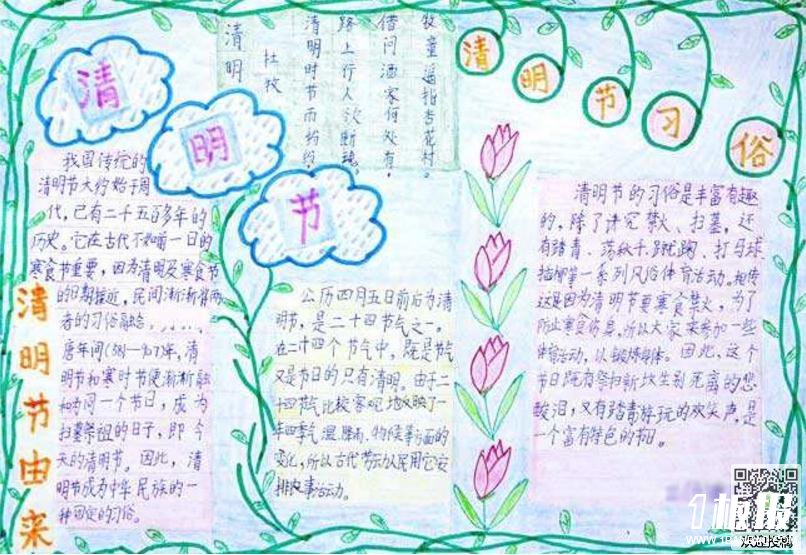 清
明
节
清明
杜牧
清明时节雨纷纷,
路上行人欲断魂。
借问酒家何处有,
牧童遥指杏花村。
清明节习俗
清明节由来
我国传统的
清明节大约始于周
代,已有二千五百多年的
历史。它在古代不如前一日的
寒食节重要,因为清明及寒食节
的日期接近,民间渐渐将两
者的习俗融合,......
唐年间(381-907年,清
明节和寒时节便渐渐融
和为同一个节日,成为
扫墓祭祖的日子,即今
天的清明节。因此,清
明节成为中华民族的一
种固定的习俗。
公历四月五日前后为清
明节,是二十四节气之一。
在二十四个节气中,既是节气
又是节日的只有清明。由于二
十四节气比较客观地反映了一
年四季气温、降雨、物候等方面的
变化,所以古代劳动人民用它安
排农事活动。
清明节的习俗是丰富有趣
的,除了讲究禁火、扫墓,还
有踏青、荡秋千、蹴鞠、打马球、
插柳等一系列风俗体育活动。相传
这是因为清明节要寒食禁火,为了
防止寒食伤身,所以大家来参加一些
体育活动,以锻炼身体。因此,这个
节日既有祭扫新坟生别死离的悲
酸泪,又有踏青游玩的欢笑声,是
一个富有特色的节日。
1板报
欢迎投稿